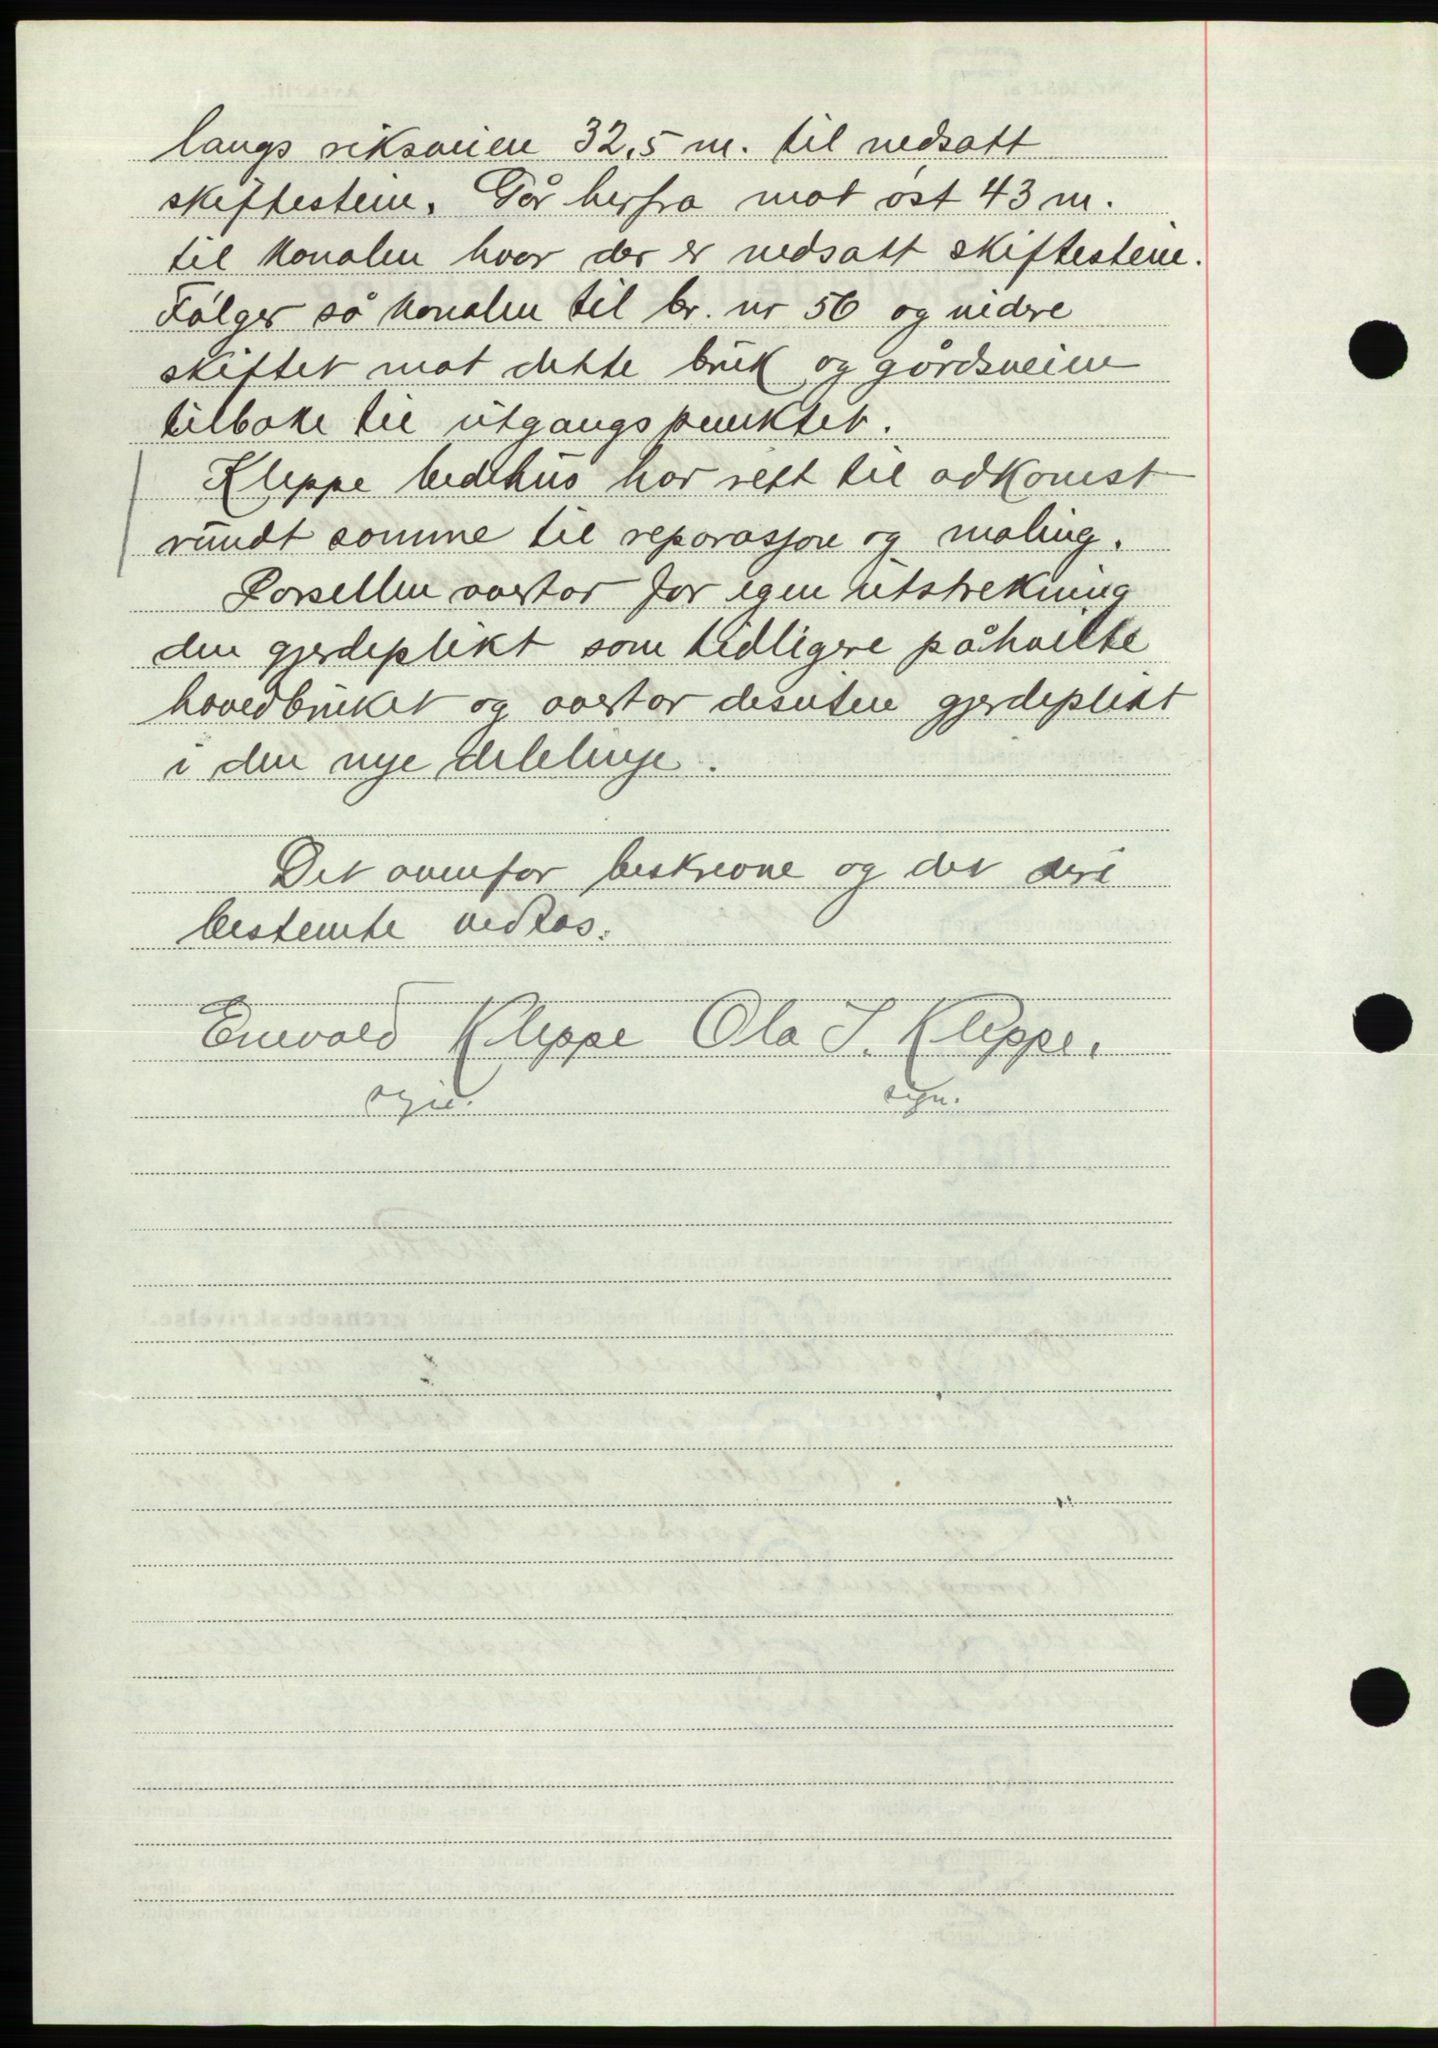 langs riksveien 32,5 m. til nedsatt
skiftestein. Går herfra mot øst 43 m.
til kanalen hvor der er nedsatt skiftestein.
Følger så kanalen til br. nr 56 og videre
skiftet mot dette bruk og gårdsveien
tilbake til utgangspunktet.
Kleppe bedehus har rett til adkomst
rundt samme til reparasjon og maling.
Parsellen overtar for egen utstrekning
den gjerdeplikt som tidligere påhvilte
hovedbruket og overtar desuten gjerdeplikt
i den nye delelinje.
Det ovenfor beskrevne og det deri
bestemte vedtas.
Enevald Kleppe Ola S. Kleppe.
sign. sign.